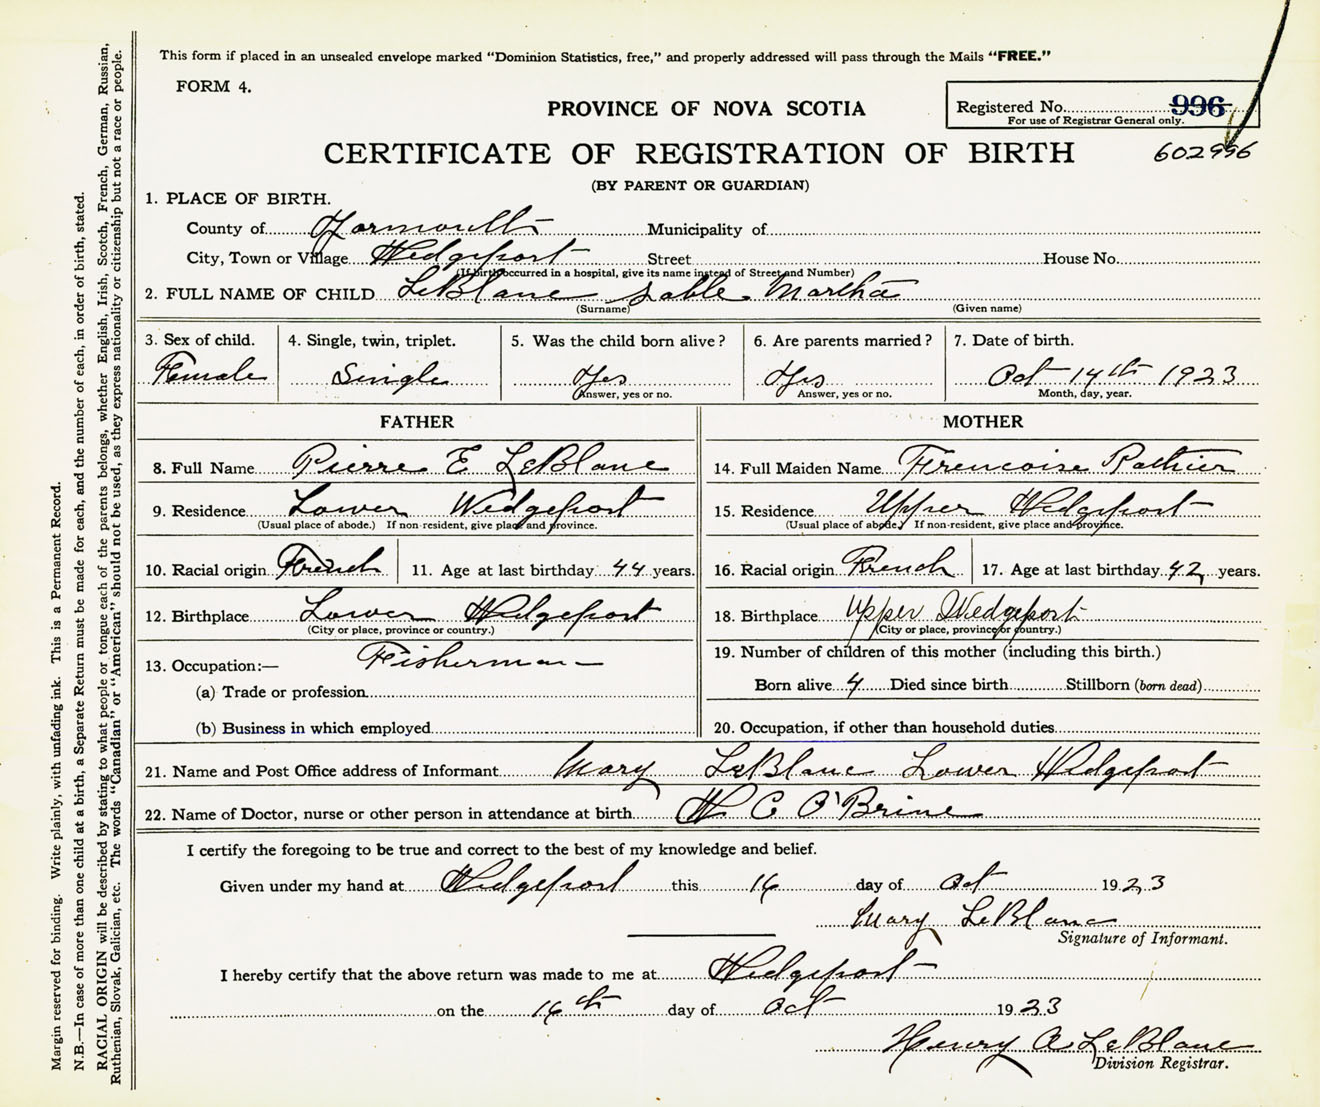 This form if placed in an unsealed envelope marked "Dominion Statistics, free," and properly addressed will pass through the Mails "FREE."
FORM 4.
PROVINCE OF NOVA SCOTIA
Registered No. 996
For use of Registrar General only.
CERTIFICATE OF REGISTRATION OF BIRTH
602996
(BY PARENT OR GUARDIAN)
1. PLACE OF BIRTH.
County of Yarmouth Municipality of
City, Town or Village Wedgeport Street House No.
(If birth occurred in a hospital, give its name instead of Street and Number)
2. FULL NAME OF CHILD LeBlanc Sable Martha
(Surname) (Given name)
3. Sex of child. 4. Single, twin, triplet. 5. Was the child born alive? 6. Are parents married? 7. Date of birth.
Female Single Yes Yes Oct 14th 1923
Answer, yes or no. Answer, yes or no. Month, day, year.
FATHER MOTHER
8. Full Name Pierre E LeBlanc 14. Full Maiden Name Frencoise Pothier
9. Residence Lower Wedgeport 15. Residence Upper Wedgeport
(Usual place of abode.) If non-resident, give place and province. (Usual place of abode.) If non-resident, give place and province.
10. Racial origin French 11. Age at last birthday 44 years. 16. Racial origin French 17. Age at last birthday 42 years.
12. Birthplace Lower Wedgeport 18. Birthplace Upper Wedgeport
(City or place, province or country.) (City or place, province or country.)
13. Occupation:— Fisherman 19. Number of children of this mother (including this birth.)
(a) Trade or profession Born alive 4 Died since birth Stillborn (born dead)
(b) Business in which employed 20. Occupation, if other than household duties
21. Name and Post Office address of Informant Mary LeBlanc Lower Wedgeport
22. Name of Doctor, nurse or other person in attendance at birth W C O'Brine
I certify the foregoing to be true and correct to the best of my knowledge and belief.
Given under my hand at Wedgeport this 16 day of Oct 1923
Mary LeBlanc
Signature of Informant.
I hereby certify that the above return was made to me at Wedgeport
on the 16th day of Oct 1923
Henry A LeBlanc
Division Registrar.
Margin reserved for binding. Write plainly, with unfading ink. This is a Permanent Record.
N.B.—In case of more than one child at a birth, a Separate Return must be made for each, and the number of each, in order of birth, stated.
RACIAL ORIGIN will be described by stating to what people or tongue each of the parents belongs, whether English, Irish, Scotch, French, German, Russian,
Ruthenian, Slovak, Galician, etc. The words "Canadian" or "American" should not be used, as they express nationality or citizenship but not a race or people.